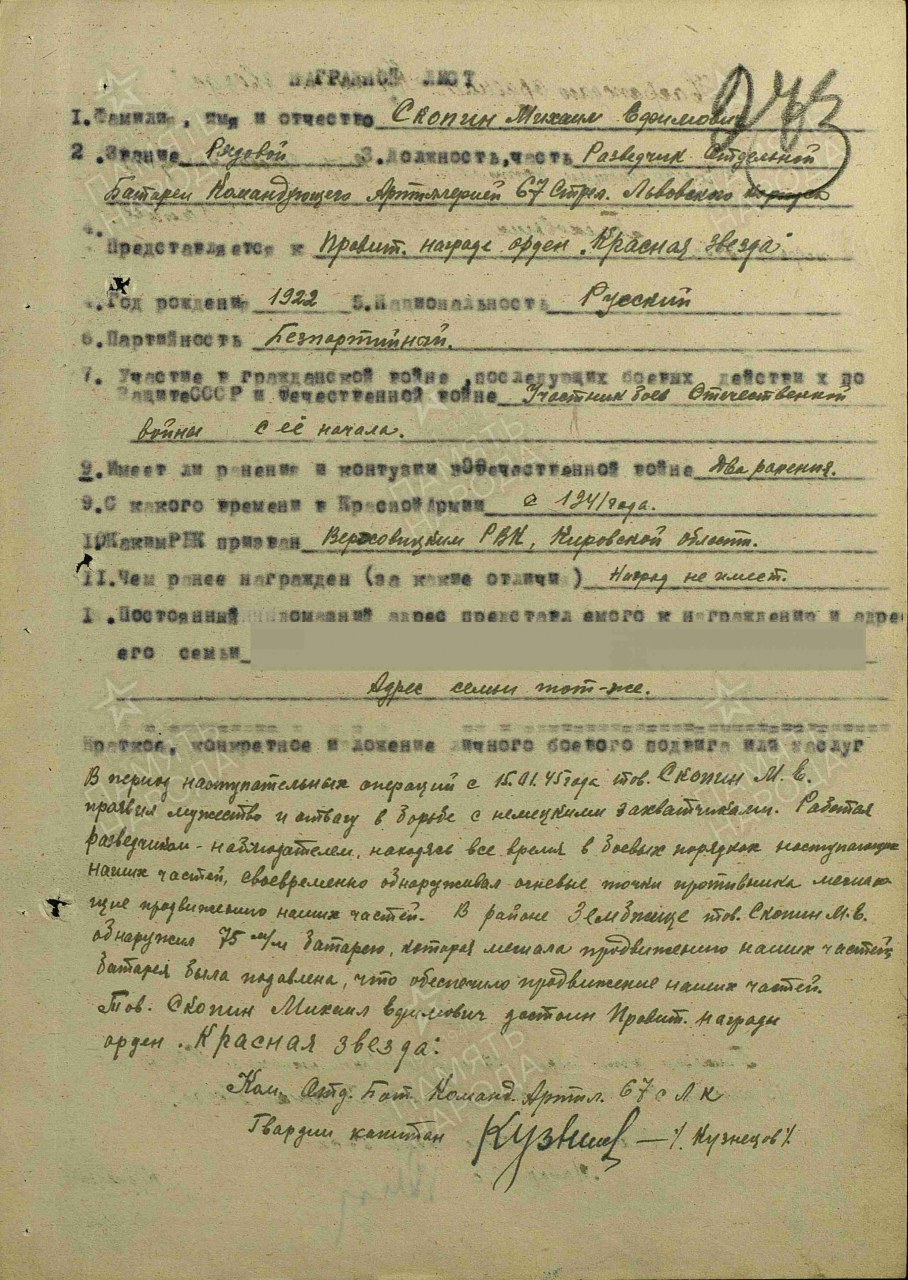 НАГРАДНОЙ ЛИСТ
243
I. Фамилия, имя и отчество Скопин Михаил Ефимович
2. Звание Рядовой 3. Должность, часть Разведчик Отдельной
Батареи Командующего Артиллерией 67 Стрел. Львовского корпуса
4.
Представляется к Правит. награде орден "Красная звезда"
4. Год рождения 1922 5. Национальность Русский
6. Партийность Безпартийный.
7. Участие в гражданской войне, последующих боевых действи х по
Защите СССР и отечественной войне Участник боев Отечественной
войны с её начала.
9. Имеет ли ранения и контузии в Отечественной войне Два ранения.
9. С какого времени в Красной Армии с 1941 года.
10 Каким РВК призван РВК, Кировской област.
II. Чем ранее награжден (за какие отличия) Наград не имеет.
I . Постоянный домашний адрес представл емого к награждению и адрес
его семьи
Адрес семьи тот-же.
Краткое, конкретное изложение личного боевого подвига или заслуг
В период наступательных операций с 15.01.45 года тов. Скопин М.Е.
проявил мужество и отвагу в борьбе с немецкими захватчиками. Работая
разведчиком-наблюдателем, находясь все время в боевых порядках наступающих
наших частей, своевременно обнаруживал огневые точки противника мешаю-
щие продвижению наших частей. В районе Земблжице тов. Скопин М.Е.
обнаружил 75 м/м батарею, которая мешала продвижению наших частей,
батарея была подавлена, что обеспечило продвижение наших частей.
Тов. Скопин Михаил Ефимович достоин Правит. награды
орден "Красная звезда":
Ком. Отд. Бат. Команд. Артил. 67 с Л к
Гвардии капитан Кузнецов — /. Кузнецов /.
ПАМЯТЬ НАРОДА